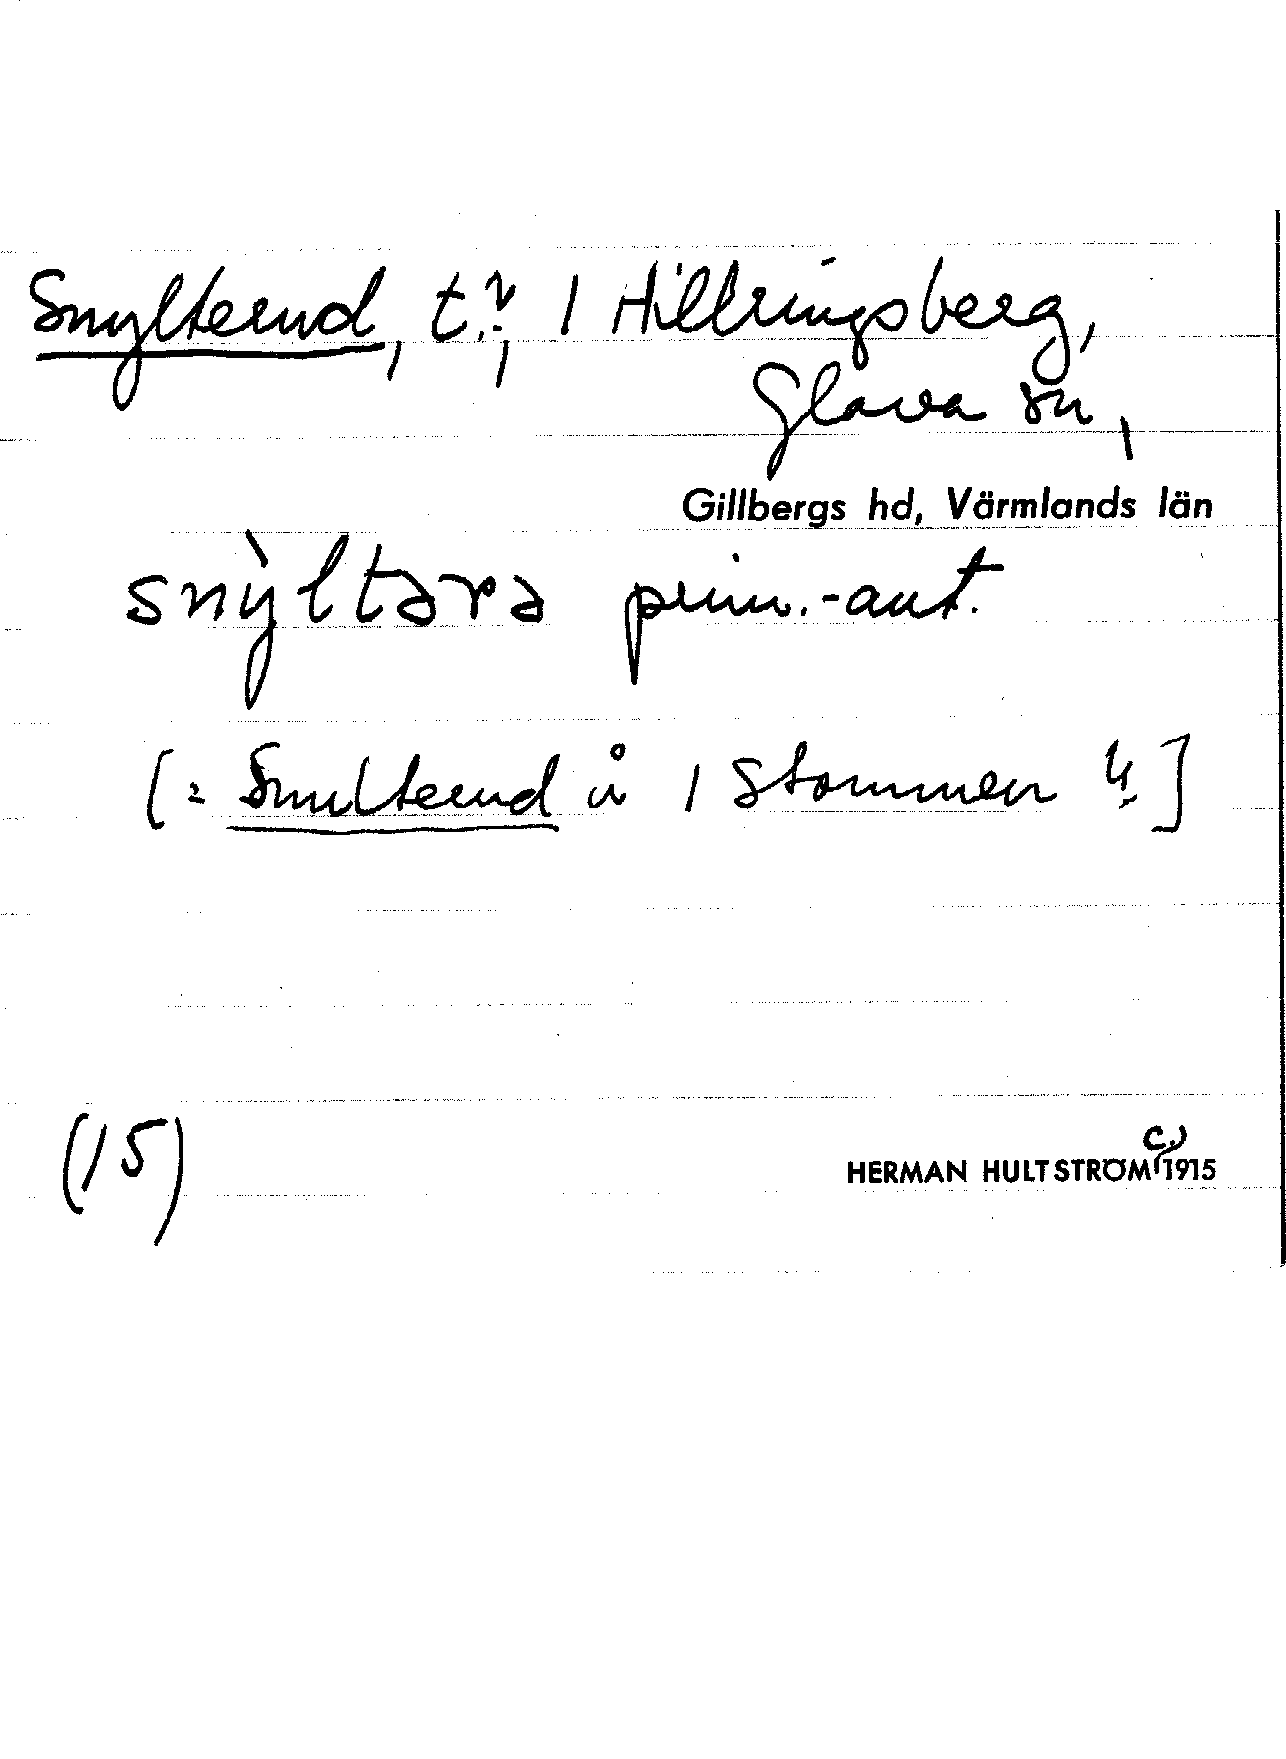 Snylterud, t.?, / Hillringsberg,
Glava sn,
Gillbergs hd, Värmlands län
snỳltərə prim.-ant.
[= Snulterud å / Stommen
(15)
HERMAN HULTSTRÖM 1915